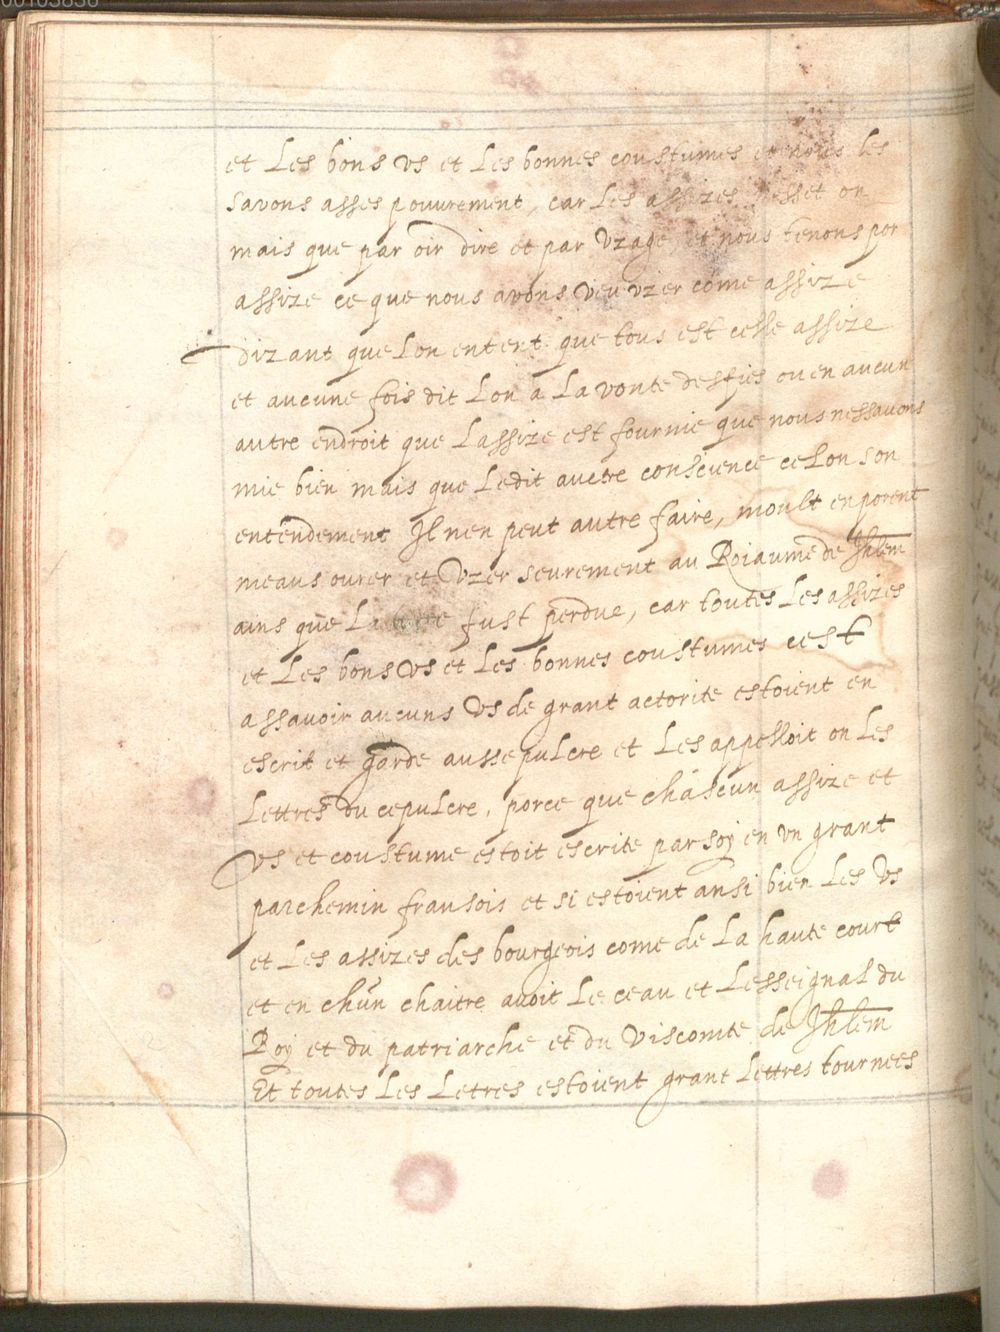 00103836
et Les bons vs et Les bonnes coustumes et nous les
savons asses pouurement, car Les assizes on
mais que par oir dire et par vzage et nous tenons por
assize ce que nous avons veu vzer come assize
dizant que Lon entent que tous est celle assize
et aucune fois dit Lon a La vonte ou en aucun
autre endroit que Lassize est fournie que nous nessavons
mie bien mais que Ledit auctre conscience celon son
entendement Il nen peut autre faire, moult en porent
meaus ourer et vzer seurement au Roiaume de Jhlem
ains que La fust perdue, car toutes Les assizes
et Les bons vs et Les bonnes coustumes cest
assavoir aucuns vs de grant actorite estoient en
escrit et garde aussepulcre et Les appelloit on Les
Lettres du cepulcre, porce que châscun assize et
vs et coustume estoit escrite par soy en vn grant
parchemin fransois et si estoient ansi bien Les vs
et Les assizes des bourgeois come de La haute court
et en chũn chaitre avoit Le ceau et Lesseignal du
Roy et du patriarche et du viscomte de Jhlem
Et toutes Les Letres estoient grant Lettres tournees